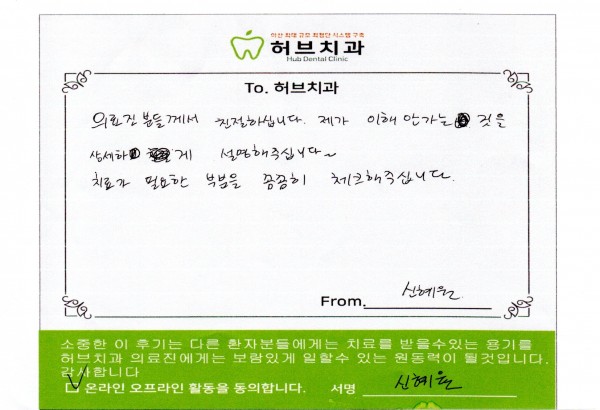 아산 최대 규모 최첨단 시스템 구축
허브치과
Hub Dental Clinic
To. 허브치과
의료진 분들께서 친절하십니다. 제가 이해 안가는 것을
상세하게 설명해주십니다~
치료가 필요한 부분을 꼼꼼히 체크해주십니다.
From. 신혜원
소중한 이 후기는 다른 환자분들에게는 치료를 받을수있는 용기를
허브치과 의료진에게는 보람있게 일할수 있는 원동력이 될것입니다.
감사합니다
온라인 오프라인 활동을 동의합니다. 서명 신혜원